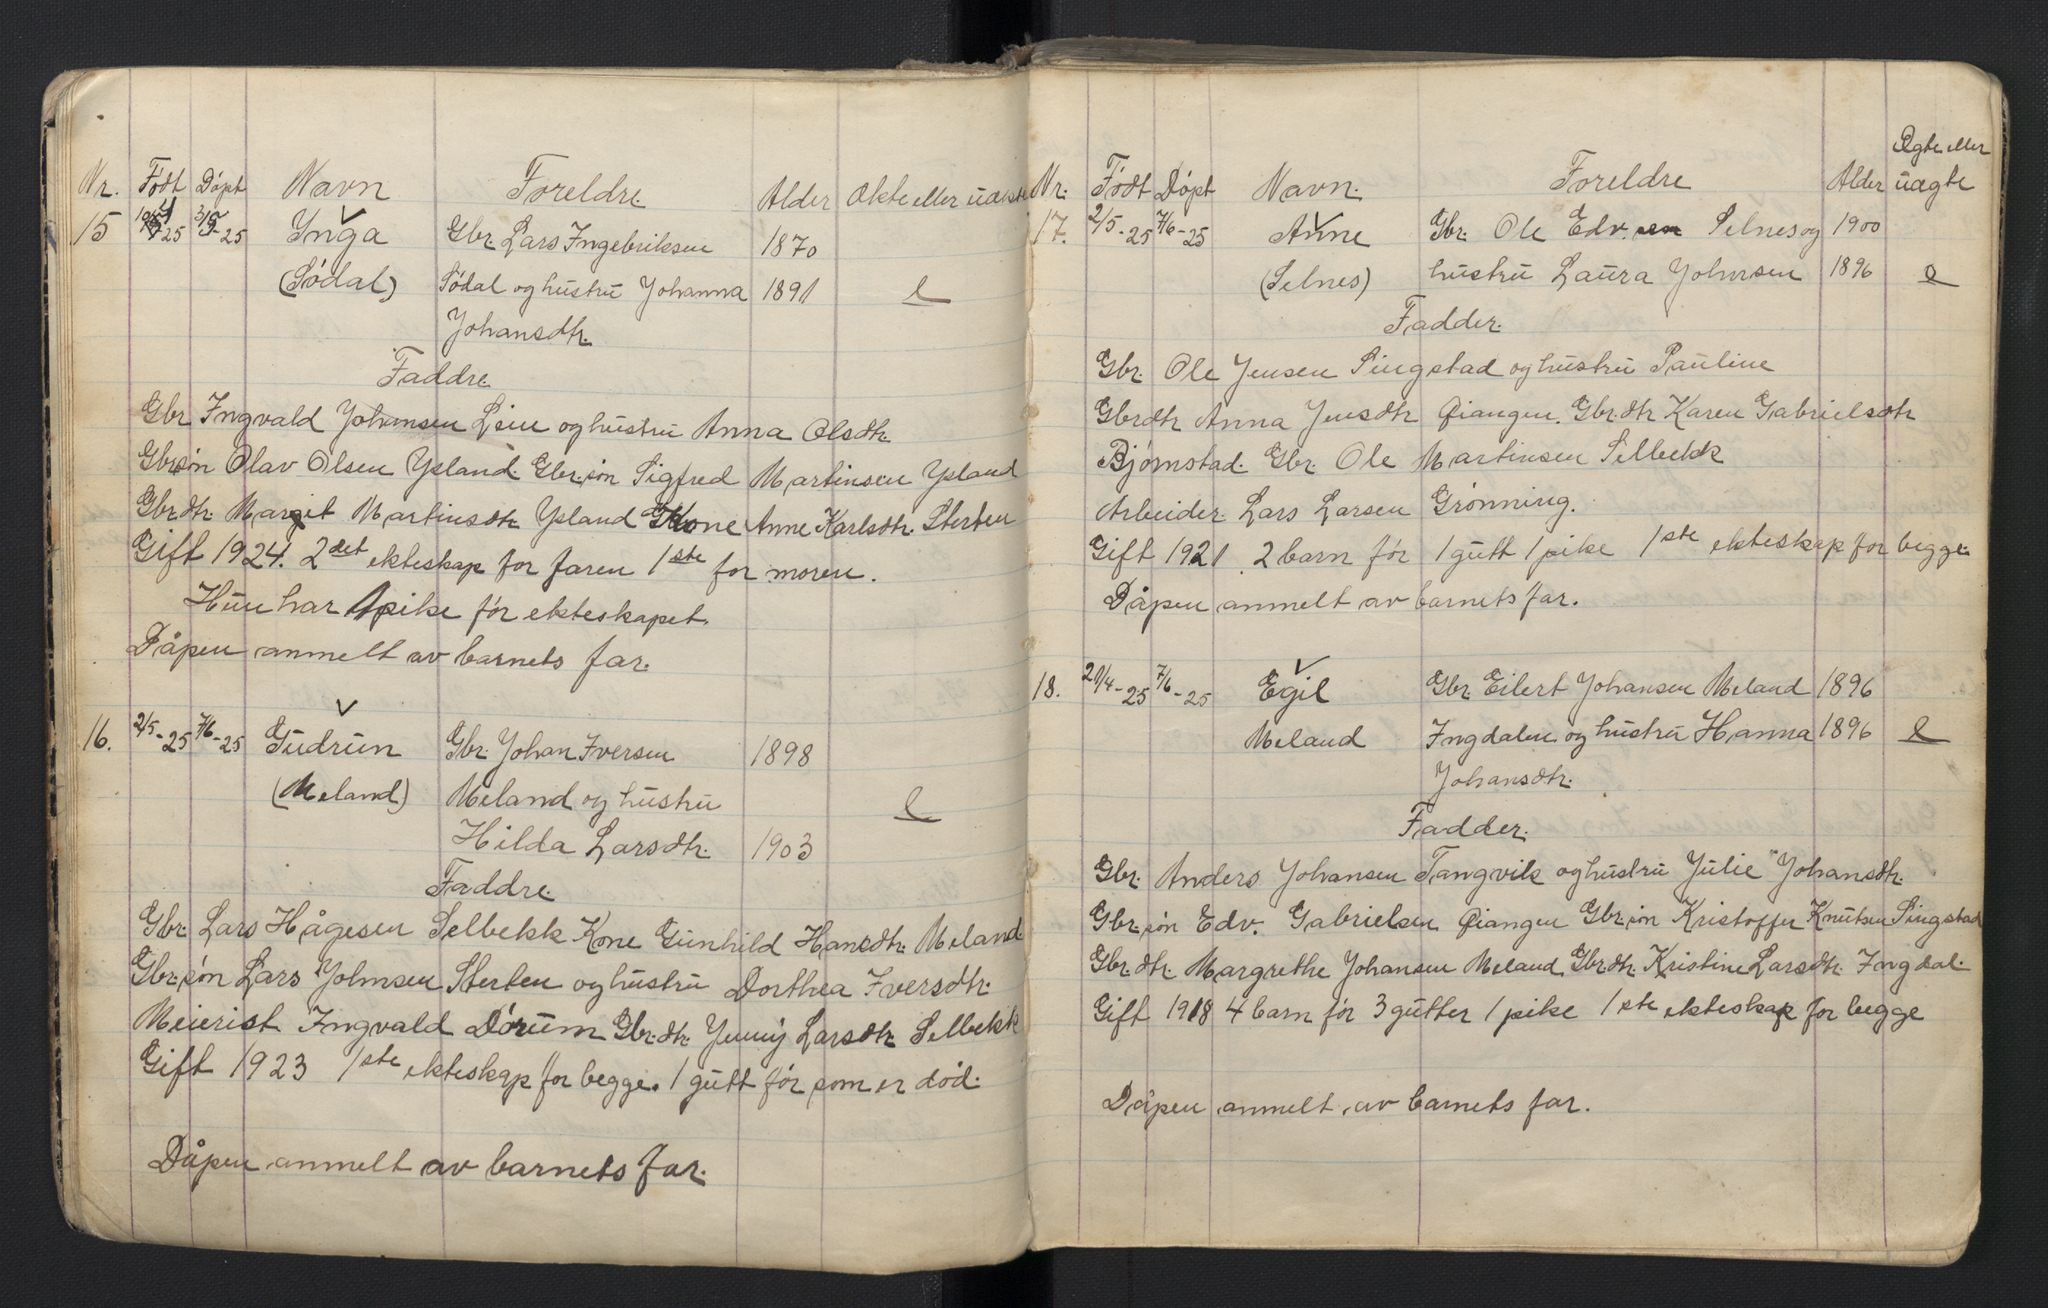 Nr. Født Døpt Navn Foreldre. Alder Ekte eller uekte
15 25 3/5-25 Inga Gbr. Lars Ingebriksen 1870
(Sødal) Sødal og hustru Johanna 1891 e
Johansdtr.
Faddre.
Gbr Ingvald Johansen Lein og hustru Anna Olsdtr.
Gbrsøn Olav Olsen Ysland. Gbr.søn Sigfred Martinsen Ysland
Gbr.dtr. Margit Martinsdtr Ysland Kone Anne Karlsdtr. Sterten
Gift 1924. 2det ekteskap for faren 1ste for moren.
Hun har 1 pike før ekteskapet.
Dåpen anmelt av barnets far.
16. 2/5-25 7/6-25 Gudrun Gbr. Johan Iversen 1898
(Meland) Meland og hustru e
Hilda Larsdtr. 1903
Faddre.
Gbr. Lars Hågesen Selbekk Kone Gunhild Hansdtr. Meland
Gbr.søn Lars Johnsen Sterten og hustru Dorthea Iversdtr.
Meierist Ingvald Dørum Gbr.dtr. Jenny Larsdtr Selbekk
Gift 1923 1ste ekteskap for begge. 1 gutt før som er død.
Dåpen anmelt av barnets far.
Nr. Født Døpt Navn. Foreldre Alder Egte eller uægte
17. 2/5-25 7/6-25 Anne Gbr. Ole Edv.sen Selnes og 1900
(Selnes) hustru Laura Johnsen 1896 e
Fadder.
Gbr. Ole Jensen Singstad og hustru Pauline
Gbrdtr Anna Jensdtr Qiangen. Gbr.dtr Karen Gabrielsdtr
Bjørnstad. Gbr. Ole Martinsen Selbekk
Arbeider Lars Larsen Grønning.
Gift 1921 2 barn før 1 gutt 1 pike 1ste ekteskap for begge.
Dåpen anmelt av barnets far.
18. 21/4-25 7/6-25 Egil Gbr. Eilert Johansen Meland 1896
Meland Ingdalen og hustru Hanna 1896 e
Johansdtr.
Fadder.
Gbr. Anders Johansen Tangvik og hustru Julie Johansdtr.
Gbr.søn Edv. Gabrielsen Qiangen Gbr.søn Kristoffer Knutsen Singstad
Gbr.dtr. Margrethe Johansen Meland Gbr.dtr. Kristine Larsdtr. Ingdal.
Gift 1918 4 barn før 3 gutter 1 pike 1ste ekteskap for begge
Dåpen anmelt av barnets far.